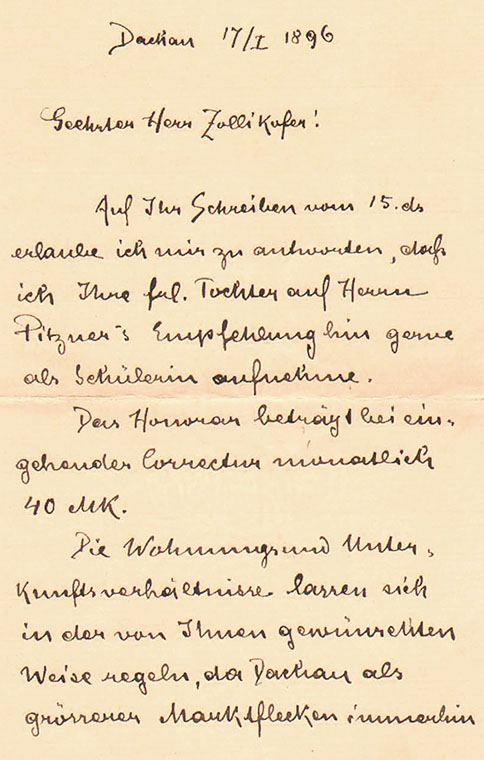 Dachau 17/I 1896
Geehrter Herr Zollikofer!
Auf Ihr Schreiben vom 15. ds
erlaube ich mir zu antworten, daß
ich Ihre frl. Tochter auf Herrn
Pitzner's Empfehlung hin gerne
als Schülerin aufnehme.
Das Honorar beträgt bei ein-
gehender Correctur monatlich
40 MK.
Die Wohnungs und Unter-
kunftsverhältnisse lassen sich
in der von Ihnen gewünschten
Weise regeln, da Dachau als
grösserer Marktflecken immerhin